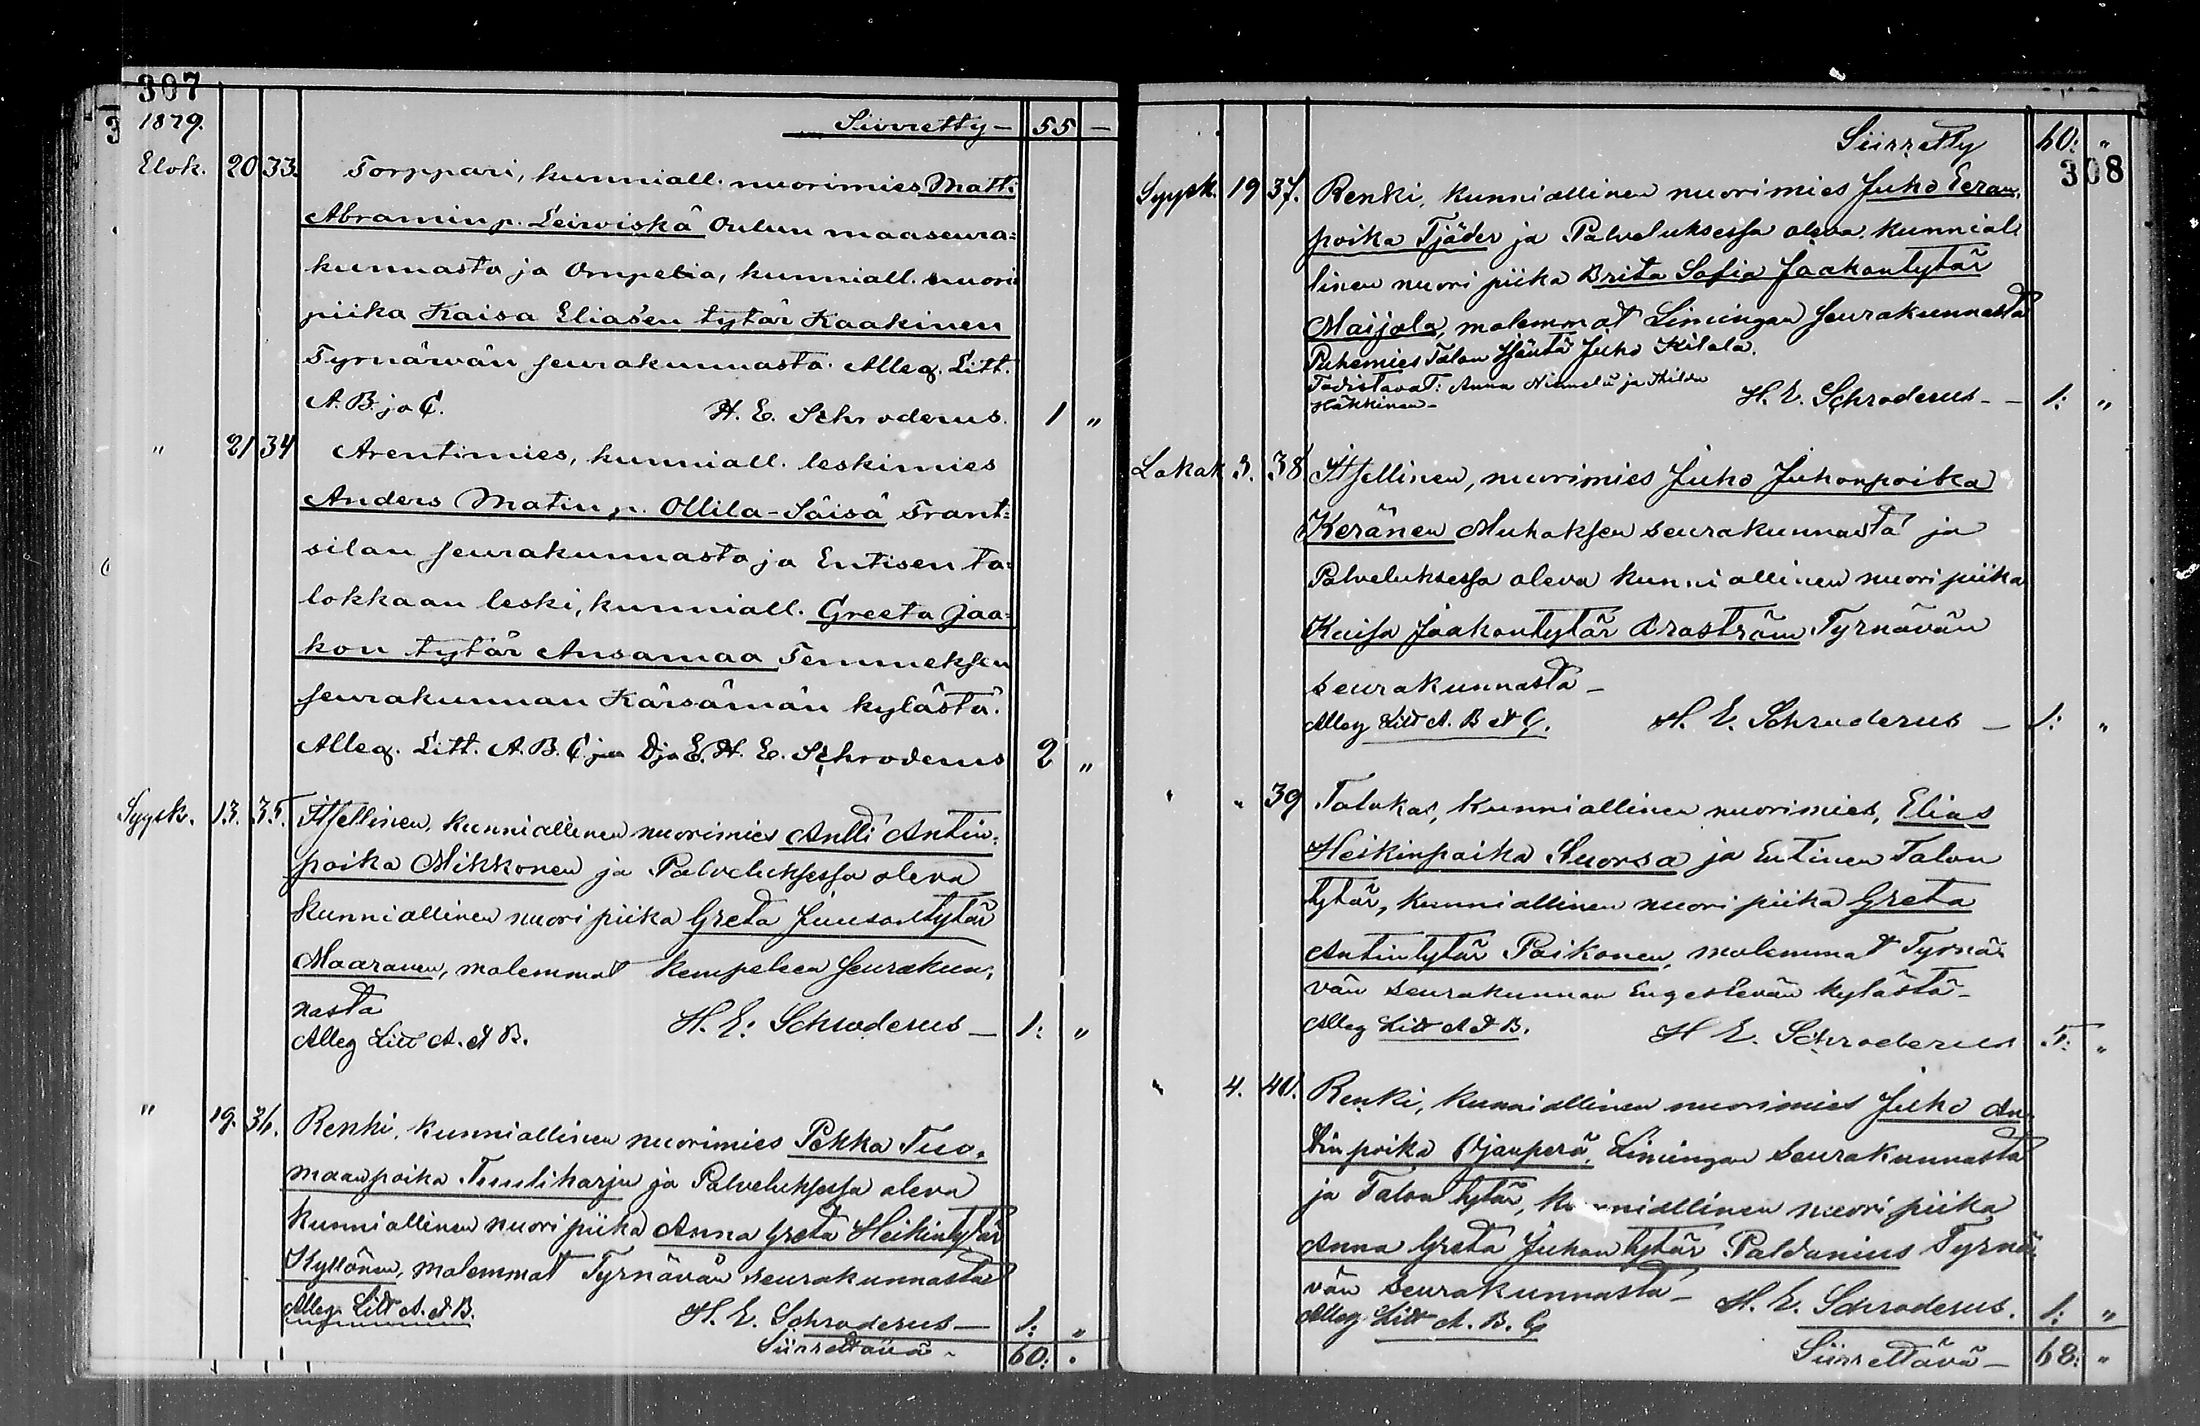 307
1879. Siirretty — 55 —
Elok. 20 33. Torppari, kunniall. nuorimies Matti
Abramin p. Leiviskä Oulun maaseura=
kunnasta ja Ompelia, kunniall. nuori
piika Kaisa Eliaśen tytär Kaakinen
Tyrnäwän seurakunnasta. Alleg. Litt.
A. B. ja C. H. E. Schroderus. 1 "
" 21 34 Arentimies, kunniall. leskimies
Anders Matin p. Ollila-Säisä Frant=
silan seurakunnasta ja Entisen ta=
lokkaan leski, kunniall. Greeta Jaa=
kon tytär Ansamaa Temmeksen
seurakunnan Kärsämän kylästä.
Alleg. Litt. A. B. C. D ja E. H. E. Schroderus 2 "
Syysk. 13. 35. Itsellinen, kunniallinen nuorimies Antti Antin=
poika Mikkonen ja Palveluksessa oleva
kunniallinen nuori piika Greta Juusontytär
Maaranen, molemmat Kempeleen seurakun=
nasta H. E. Schroderus — 1: "
Alleg Litt A. & B.
" 19. 36. Renki, kunniallinen nuorimies Pekka Tuo=
maanpoika Tuuliharju ja Palveluksessa oleva
kunniallinen nuori piika Anna Greta Heikintytär
Kyllönen, molemmat Tyrnävän seurakunnasta
Alleg Litt A. & B. H. E. Schroderus — 1: "
Siirrettävä - 60: "
Siirretty 60: "
308
Syysk. 19 37. Renki, kunniallinen nuorimies Juho Eeran
poika Tjäder ja Palveluksessa oleva, kunnial
linen nuori piika Brita Sofia Jaakontytär
Maijala, molemmat Limingan seurakunnasta
Puhemies Talon Isäntä Juho Kilala.
Todistavat: Anna Niemelä ja Hilda
Häkkinen — H. E. Schroderus — 1: "
Lokak 3. 38 Itsellinen, nuorimies Juho Juhonpoika
Keränen Muhoksen seurakunnasta ja
Palveluksessa oleva kunniallinen nuori piika
Kaisa Jaakontytär Braström Tyrnävän
seurakunnasta —
Alleg Litt A. B & C. H. E. Schroderus — 1: "
" " 39 Talokas, kunniallinen nuorimies, Elias
Heikinpoika Suorsa ja Entinen Talon
tytär, kunniallinen nuori piika Greta
Antintytär Poikonen, molemmat Tyrnä=
vän seurakunnan Engeslevän kylästä —
Alleg Litt A & B. H E. Schroderus 5: "
" 4. 40. Renki, kunniallinen nuorimies Juho An=
tinpoika Ojanperä, Limingan seurakunnasta
ja Talon tytär, kunniallinen nuori piika
Anna Greta Juhontytär Paldanius Tyrnä=
vän seurakunnasta — H. E. Schroderus. 1: "
Alleg Litt A. B. C
Siirrettävä — 68: "